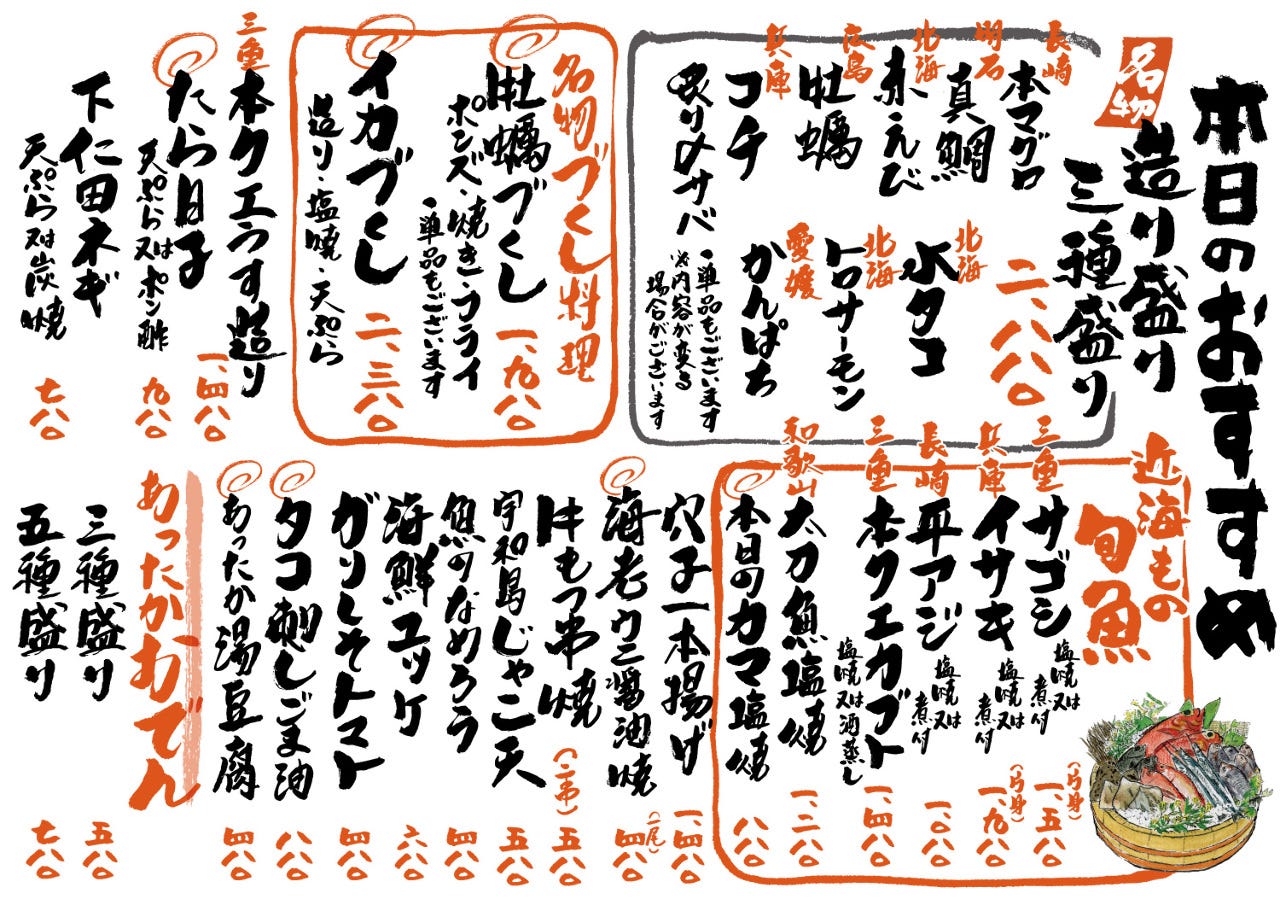 本日のおすすめ
名物
造り盛り
三種盛り
二、八八〇
長崎
本マグロ
明石
真鯛
北海
赤えび
広島
牡蠣
兵庫
コチ
炙り〆サバ
北海
水タコ
北海
トロサーモン
愛媛
かんぱち
・単品もございます
※内容が変る
場合がございます
名物づくし料理
牡蠣づくし
一、九八〇
ポンズ・焼き・フライ
・単品もございます
イカづくし
二、三八〇
造り・塩焼・天ぷら
三重
本クエうす造り
一、四八〇
たら白子
天ぷら又はポン酢
九八〇
下仁田ネギ
天ぷら又は炭焼
七八〇
近海もの
旬魚
三重
サゴシ
塩焼又は
煮付
(片身)
一、五八〇
兵庫
イサキ
塩焼又は
煮付
(片身)
一、九八〇
長崎
平アジ
塩焼又は
煮付
一、〇八〇
三重
本クエカブト
塩焼又は酒蒸し
一、四八〇
和歌山
太刀魚塩焼
一、二八〇
本日のカマ塩焼
八八〇
穴子一本揚げ
一、四八〇
海老ウニ醤油焼
(一尾)
四八〇
牛もつ串焼
(二串)
五八〇
宇和島じゃこ天
五八〇
魚のなめろう
四八〇
海鮮ユッケ
六八〇
ガリしそトマト
四八〇
タコ刺しごま油
八八〇
あったか湯豆腐
四八〇
あったかおでん
三種盛り
五八〇
五種盛り
七八〇